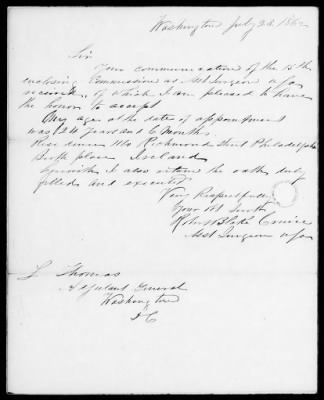 Washington July 22 1862
Sir
Your communication of the 15th
enclosing Commission as Asst Surgeon USA
received, of which I am pleased to have
the honor to accept
My age at the date of appointment
was 24 Years and 6 Months.
Residence 1116 Richmond Street Philadelphia
Birth place Ireland
herewith I also return the oath duly
filled and executed
Very Respectfully
Your Obt Servt
Robert Blake Cruice
Asst Surgeon USA
L Thomas
Adjutant General
Washington
D C